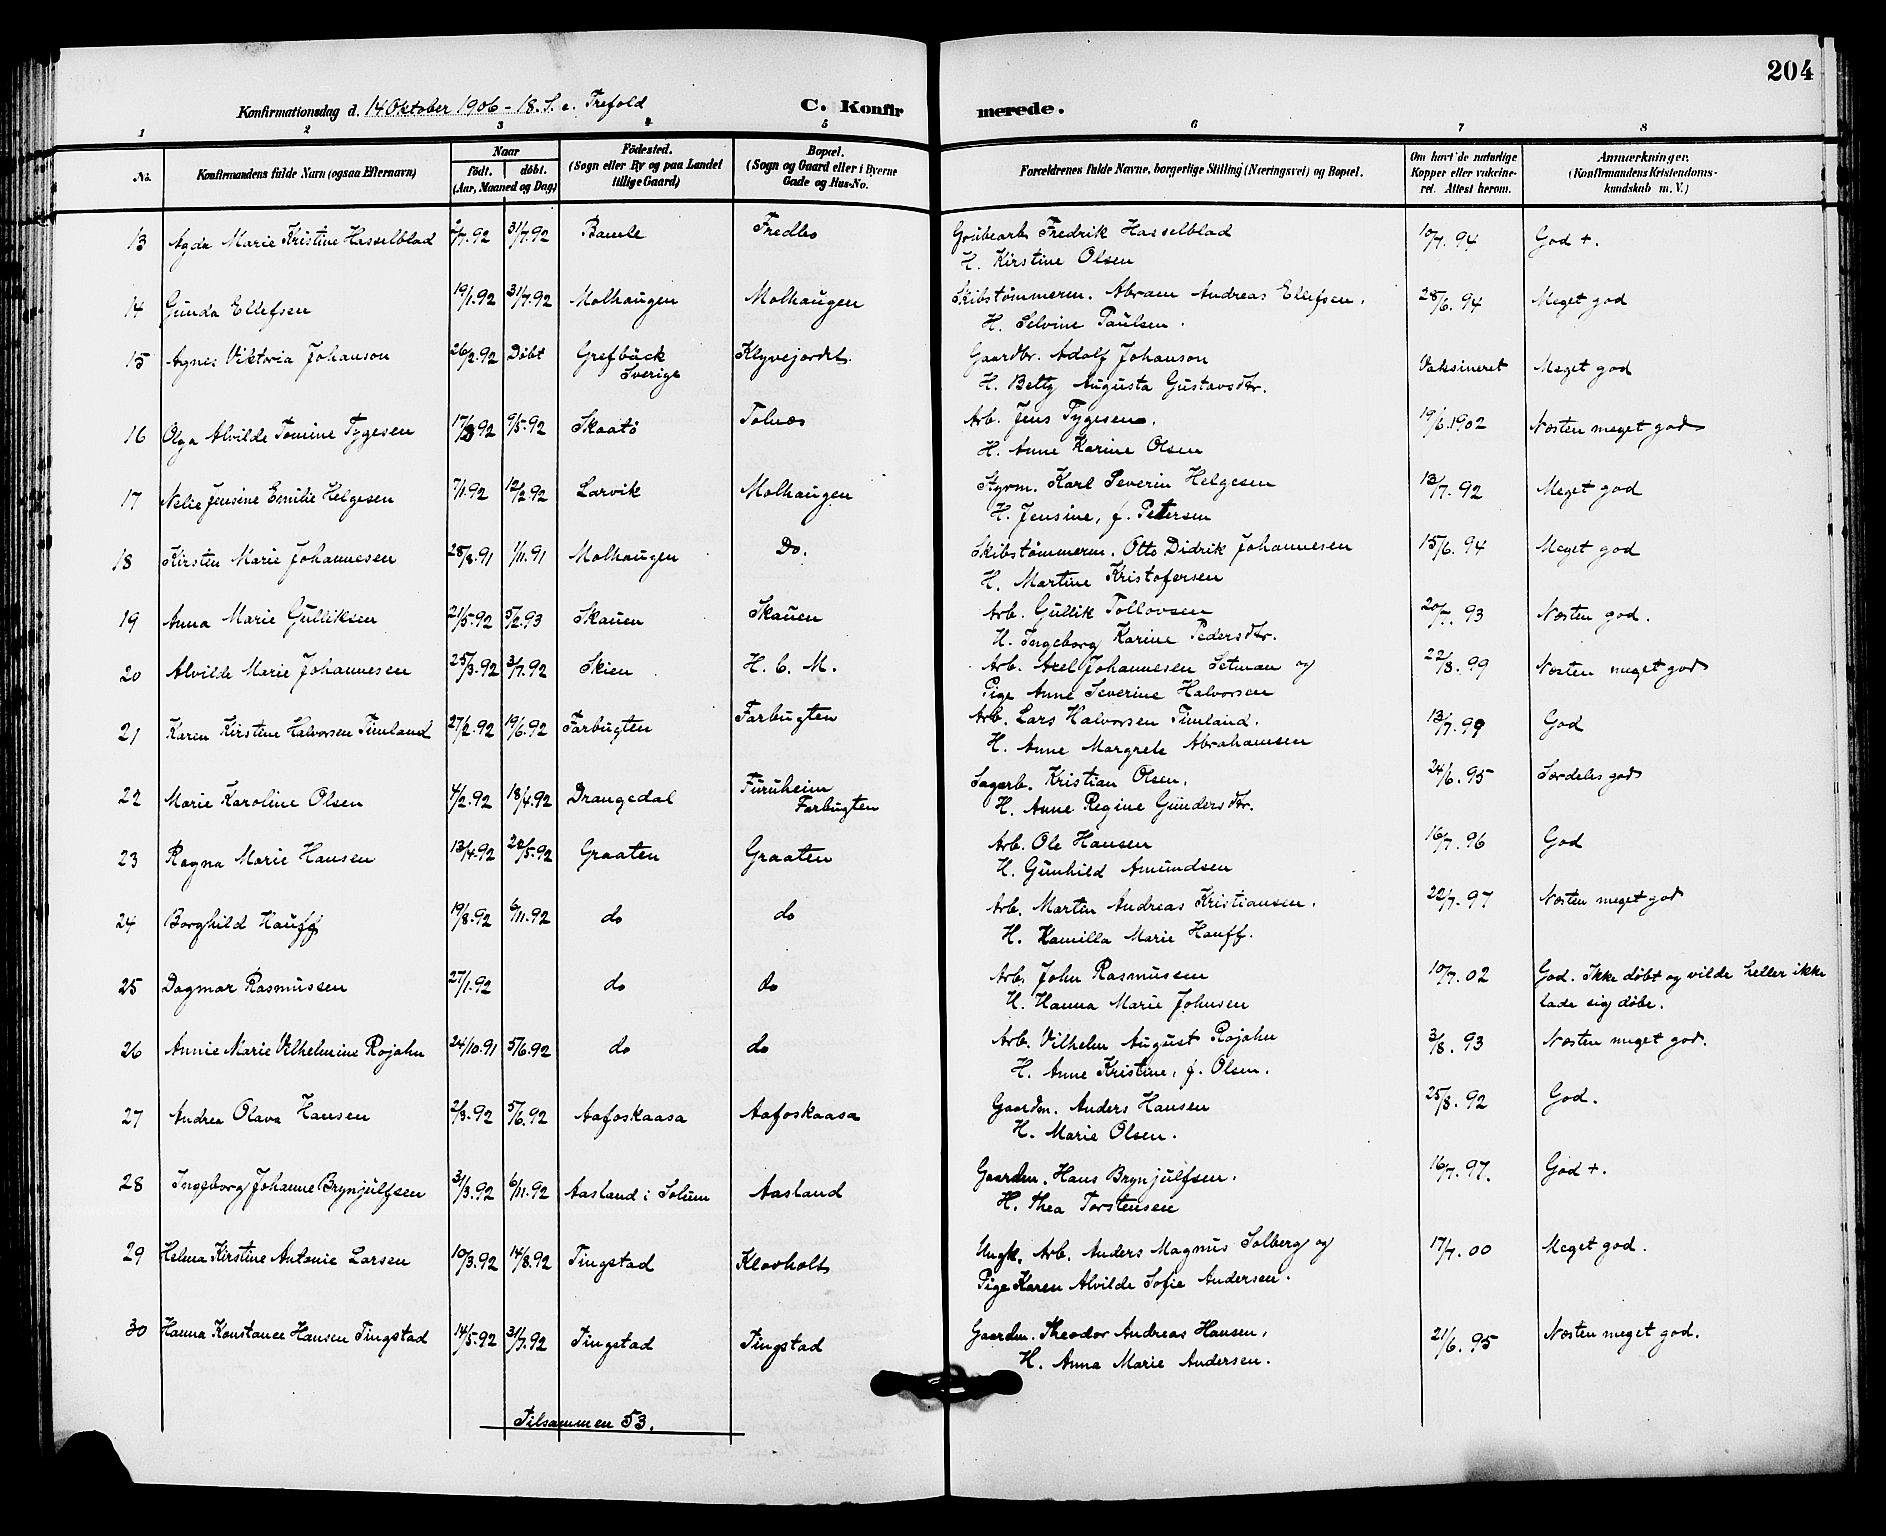 204
Konfirmationsdag d. 14 Oktober 1906 - 18. S. e. Trefold C. Konfirmerede.
1 2 3 4 5 6 7 8
No. Konfirmandens fulde Navn (ogsaa Efternavn) Naar født. døbt. (Aar, Maaned og Dag) Födested. (Sogn eller By og paa Landet tillige Gaard) Bopæl. (Sogn og Gaard eller i Byerne Gade og Hus-No. Forældrenes fulde Navne, borgerlige Stilling (Næringsvei) og Bopæl. Om havt de naturlige Kopper eller vakcineret. Attest herom. Anmærkninger. (Konfirmandens Kristendomskundskab m. V.)
13 Agda Marie Kristine Hasselblad 2/7.92 31/7.92 Bamle Fredbo Fredrik Hasselblad 10/7. 94 God +.
H. Kirstine Olsen
14 Gunda Ellefsen 19/1.92 31/7.92 Molhaugen Molhaugen Skibstømmerm. Abram Andreas Ellefsen. 28/6. 94 Meget god
H. Selvine Paulsen.
15 Agnes Viktoria Johanson 26/2.92 Døbt Grefbäck Sverige Klyvejordet. Gaardbr. Adolf Johanson Vaksineret Meget god
H. Betty Augusta Gustavsdtr.
16 Olga Alvilde Tomine Tygesen 17/3 92 9/5.92 Skaatö Tolnæs Arb. Jens Tygesen. 19/6.1902 Næsten meget god
H. Anne Karine Olsen
17 Nelie Jensine Emilie Helgesen 7/1.92 12/2.92 Larvik Molhaugen Styrm. Karl Severin Helgesen 13/7. 92 Meget god
H. Jensine, f. Petersen
18 Kirsten Marie Johannesen 28/8.91 1/11.91 Molhaugen Do. Skibstømmerm. Otto Didrik Johannesen 15/6. 94 Meget god
H. Martine Kristofersen
19 Anna Marie Gulliksen 21/5.92 5/2.93 Skauen Skauen Arb. Gullik Tollovsen 20/7. 93 Næsten god.
H. Ingeborg Karine Pedersdtr.
20 Alvilde Marie Johannesen 25/3.92 3/7.92 Skien H. C. M. Arb. Axel Johannesen Setman og 22/8. 99 Næsten meget god
Pige Anne Severine Halvorsen
21 Karen Kirstine Halvorsen Timland 27/2.92 19/6.92 Farbugten Farbugten Arb. Lars Halvorsen Timland. 13/7. 99 God
H. Anne Margrete Abrahamsen
22 Marie Karoline Olsen 4/2.92 18/4.92 Drangedal Furuheim Farbugten Sagarb. Kristian Olsen. 24/6. 95 Særdeles god
H. Anne Regine Gundersdtr.
23 Ragna Marie Hansen 13/4.92 22/5.92 Graaten Graaten Arb. Ole Hansen 16/7. 96 God
H. Gunhild Amundsen
24 Borghild Hauff 19/8.92 6/11.92 do do Arb. Martin Andreas Kristiansen. 22/7. 97 Næsten meget god
H. Kamilla Marie Hauff.
25 Dagmar Rasmussen 27/1.92 do do Arb. John Rasmussen 10/7. 02 God. Ikke döbt og vilde heller ikke
H. Hanna Marie Johnsen lade sig döbe.
26 Annie Marie Vilhelmine Rojahn 24/10.91 5/6.92 do do Arb. Vilhelm August Rojahn 3/8. 93 Næsten meget god.
H. Anne Kristine, f. Olsen.
27 Andrea Olava Hansen 2/3.92 5/6.92 Aafoskaasa Aafoskaasa Gaardm. Anders Hansen 25/8. 92 God.
H. Marie Olsen.
28 Ingeborg Johanne Brynjulfsen 31/3.92 6/11.92 Aasland i Solum Aasland Gaardm. Hans Brynjulfsen. 16/7. 97. God +.
H. Thea Torstensen
29 Helma Kirstine Antonie Larsen 10/3.92 14/8.92 Tingstad Klovholt Ungk. Arb. Anders Magnus Solberg og 17/7. 00 Meget god.
Pige Karen Alvilde Sofie Andersen.
30 Hanna Konstance Hansen Tingstad 14/5.92 31/7.92 Tingstad Tingstad Gaardm. Theodor Andreas Hansen, 21/6. 95 Næsten meget god.
H. Anna Marie Andersen.
Tilsammen 53.